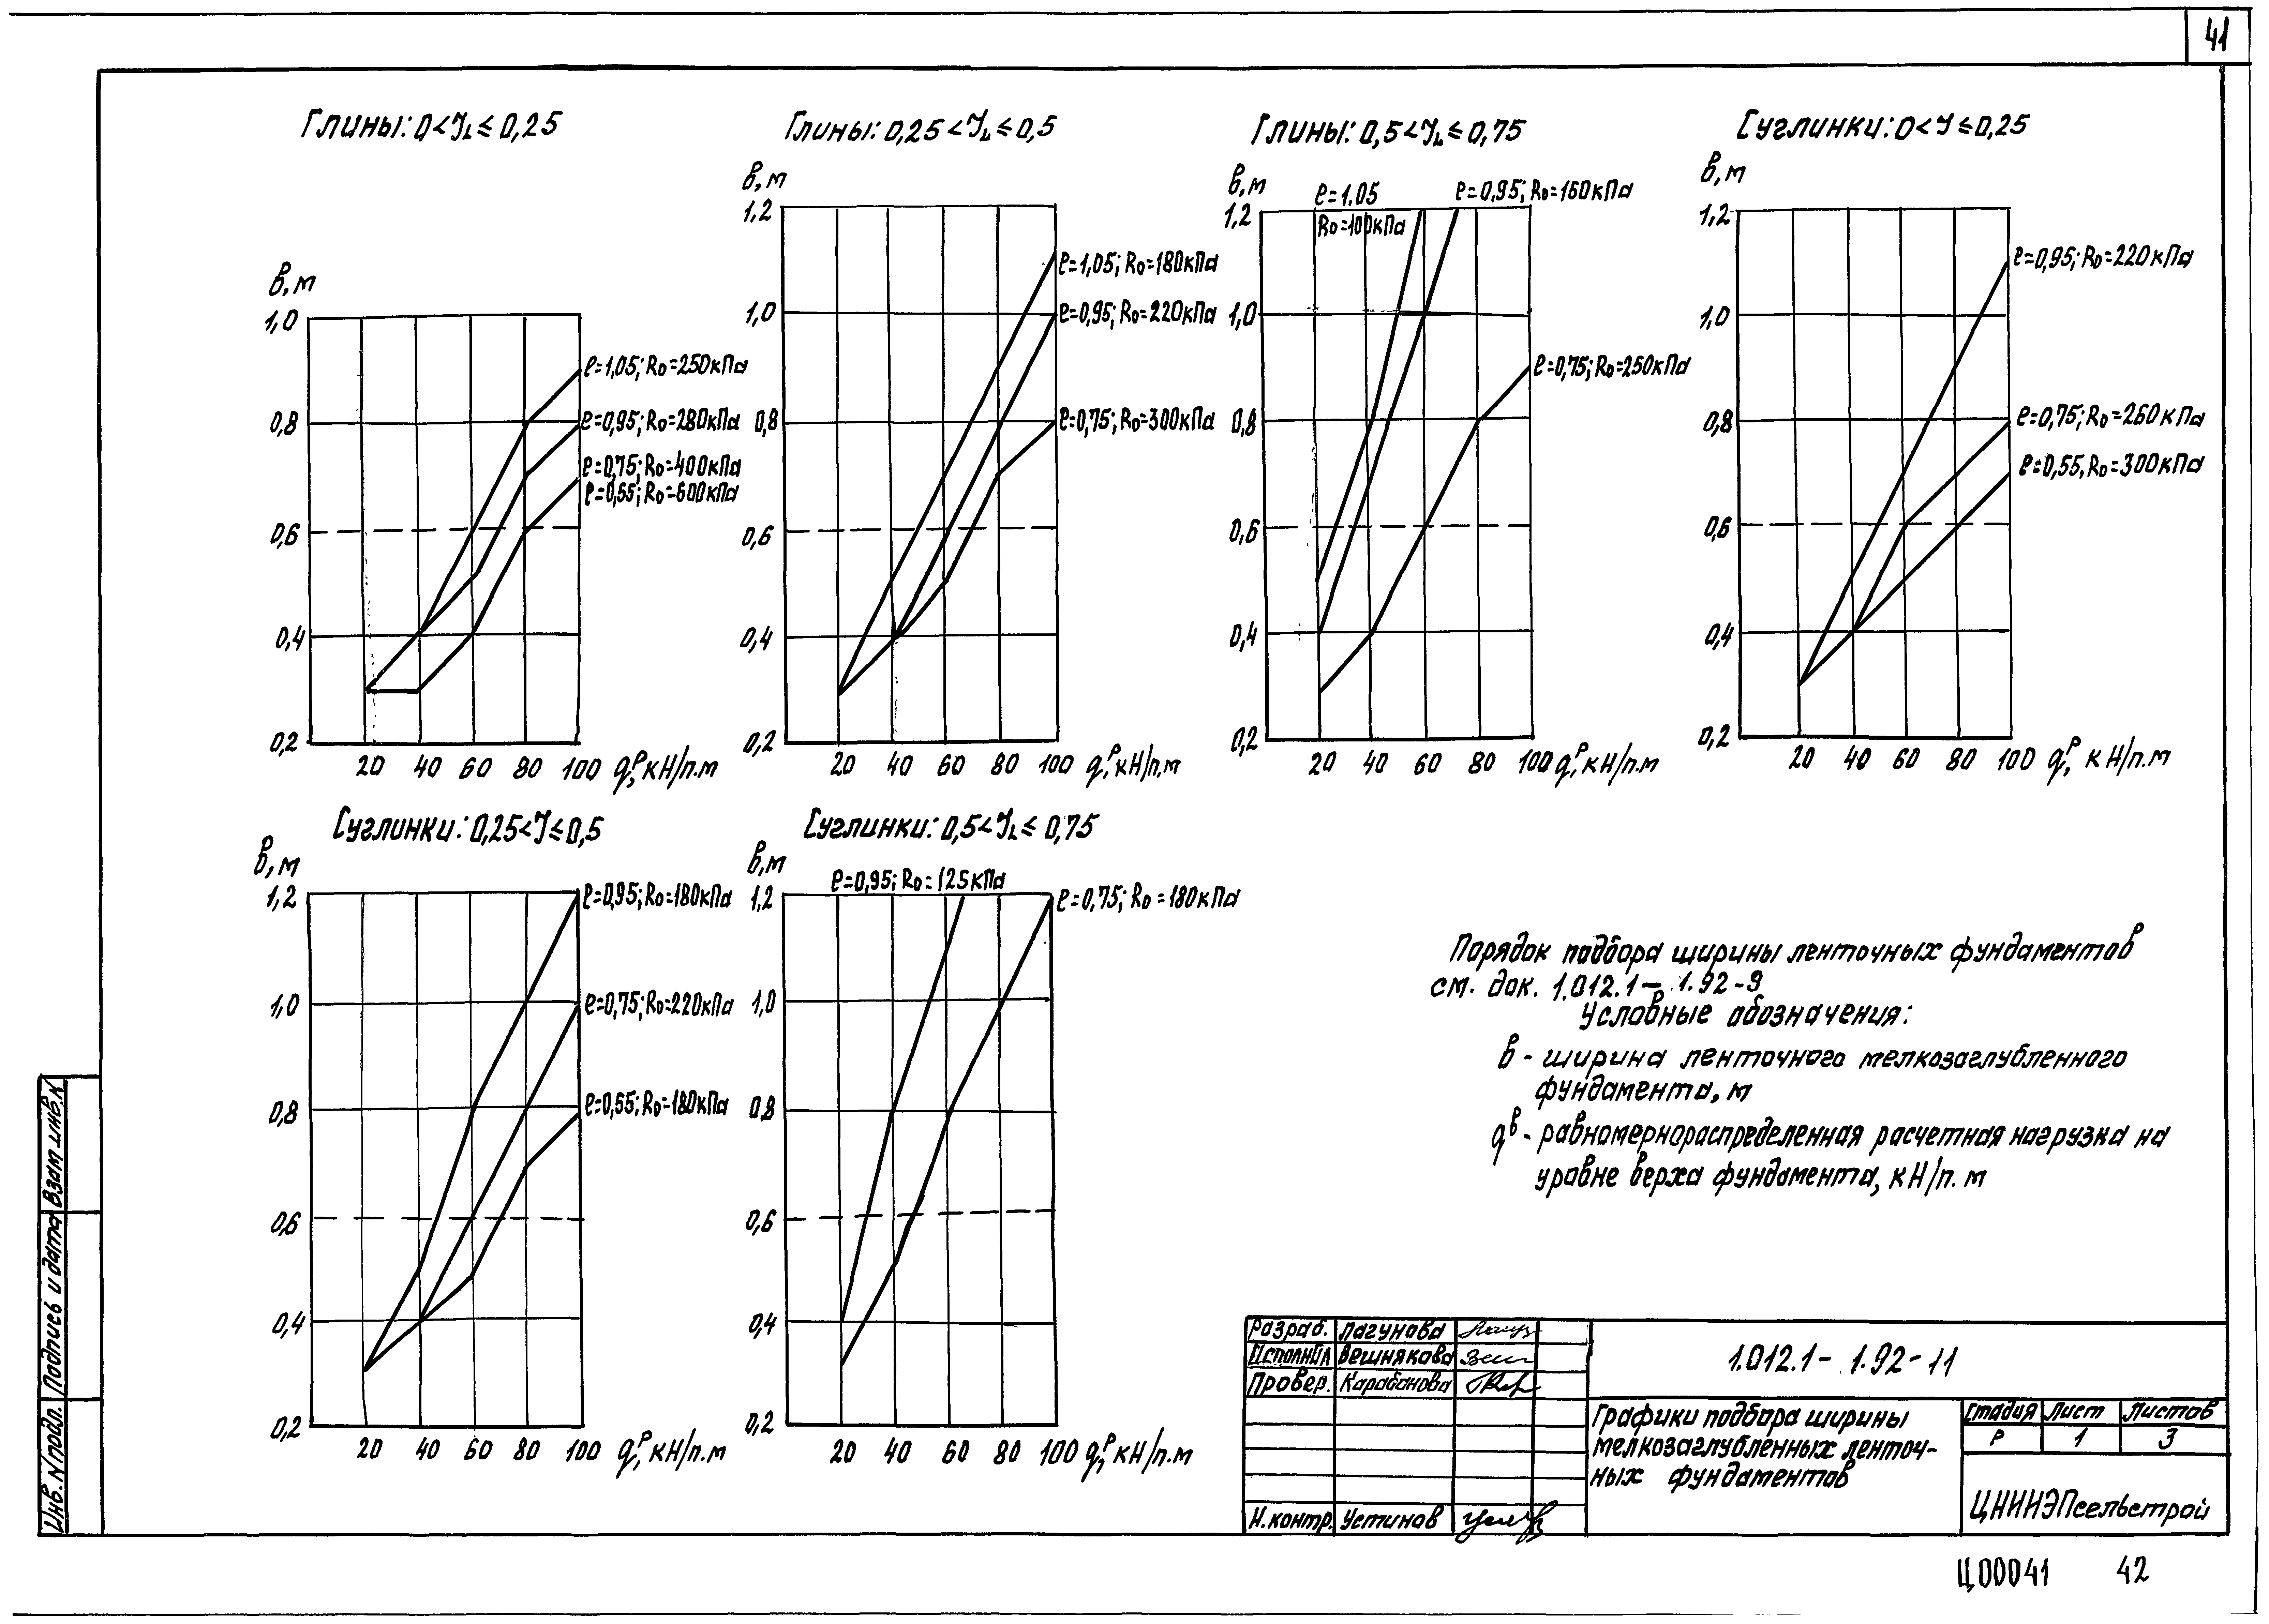 41
Глины: 0<JL≤0,25
в,м
1,0
0,8
0,6
0,4
0,2
e=1,05; R0=250кПа
e=0,95; R0=280кПа
e=0,75; R0=400кПа
e=0,55; R0=600кПа
20 40 60 80 100 qᵖ, кН/п.м
Глины: 0,25<JL≤0,5
в,м
1,2
1,0
0,8
0,6
0,4
0,2
e=1,05; R0=180кПа
e=0,95; R0=220кПа
e=0,75; R0=300кПа
20 40 60 80 100 qᵖ, кН/п.м
Глины: 0,5<JL≤0,75
в,м
1,2
1,0
0,8
0,6
0,4
0,2
e=1,05
R0=100кПа
e=0,95; R0=160кПа
e=0,75; R0=250кПа
20 40 60 80 100 qᵖ, кН/п.м
Суглинки: 0<J≤0,25
в,м
1,2
1,0
0,8
0,6
0,4
0,2
e=0,95; R0=220кПа
e=0,75; R0=260кПа
e=0,55, R0=300кПа
20 40 60 80 100 qᵖ, кН/п.м
Суглинки: 0,25<J≤0,5
в,м
1,2
1,0
0,8
0,6
0,4
0,2
e=0,95; R0=180кПа
e=0,75; R0=220кПа
e=0,55; R0=180кПа
20 40 60 80 100 qᵖ, кН/п.м
Суглинки: 0,5<JL≤0,75
в,м
1,2
1,0
0,8
0,6
0,4
0,2
e=0,95; R0=125кПа
e=0,75; R0=180кПа
20 40 60 80 100 qᵖ, кН/п.м
Порядок подбора ширины ленточных фундаментов
см. док. 1.012.1- 1.92-9
Условные обозначения:
в - ширина ленточного мелкозаглубленного
фундамента, м
qᵇ - равномернораспределенная расчетная нагрузка на
уровне верха фундамента, кН/п.м
Разраб. Лагунова
Исполнил Вешнякова
Провер. Карабанова
Н.контр. Устинов
1.012.1- 1.92-11
Графики подбора ширины
мелкозаглубленных ленточ-
ных фундаментов
Стадия Лист Листов
Р 1 3
ЦНИИЭПсельстрой
Инв. N подл. Подпись и дата Взам. инв. N
Ц00041 42